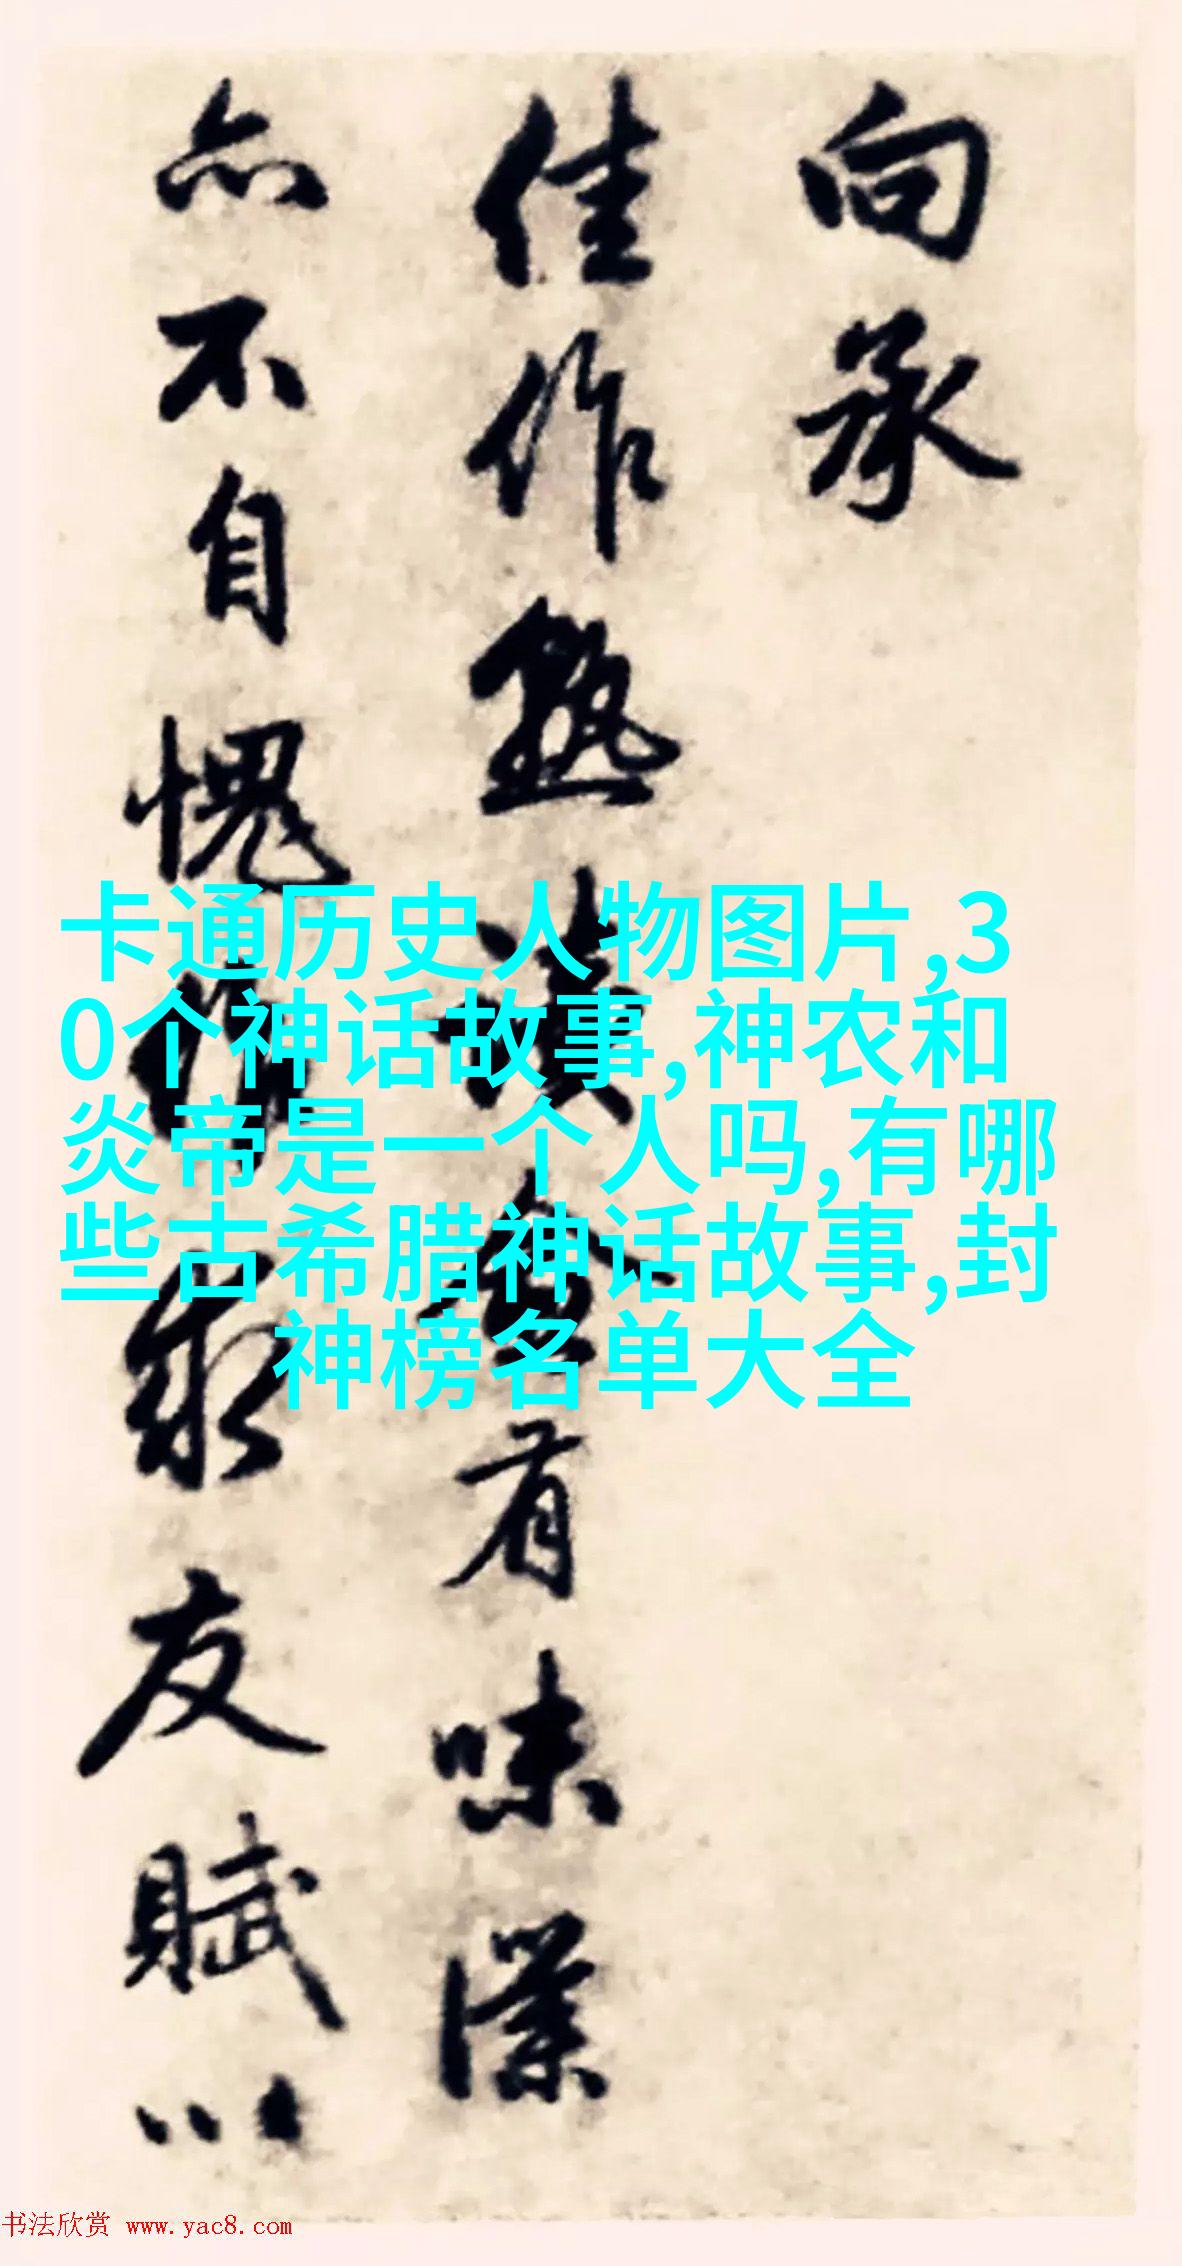 向承
佳作熟读有味
亦不自愧作求友賦以
卡通历史人物图片,3
0个神话故事,神农和
炎帝是一个人吗,有哪
些古希腊神话故事,封
神榜名单大全
书法欣赏 www.yac8.com